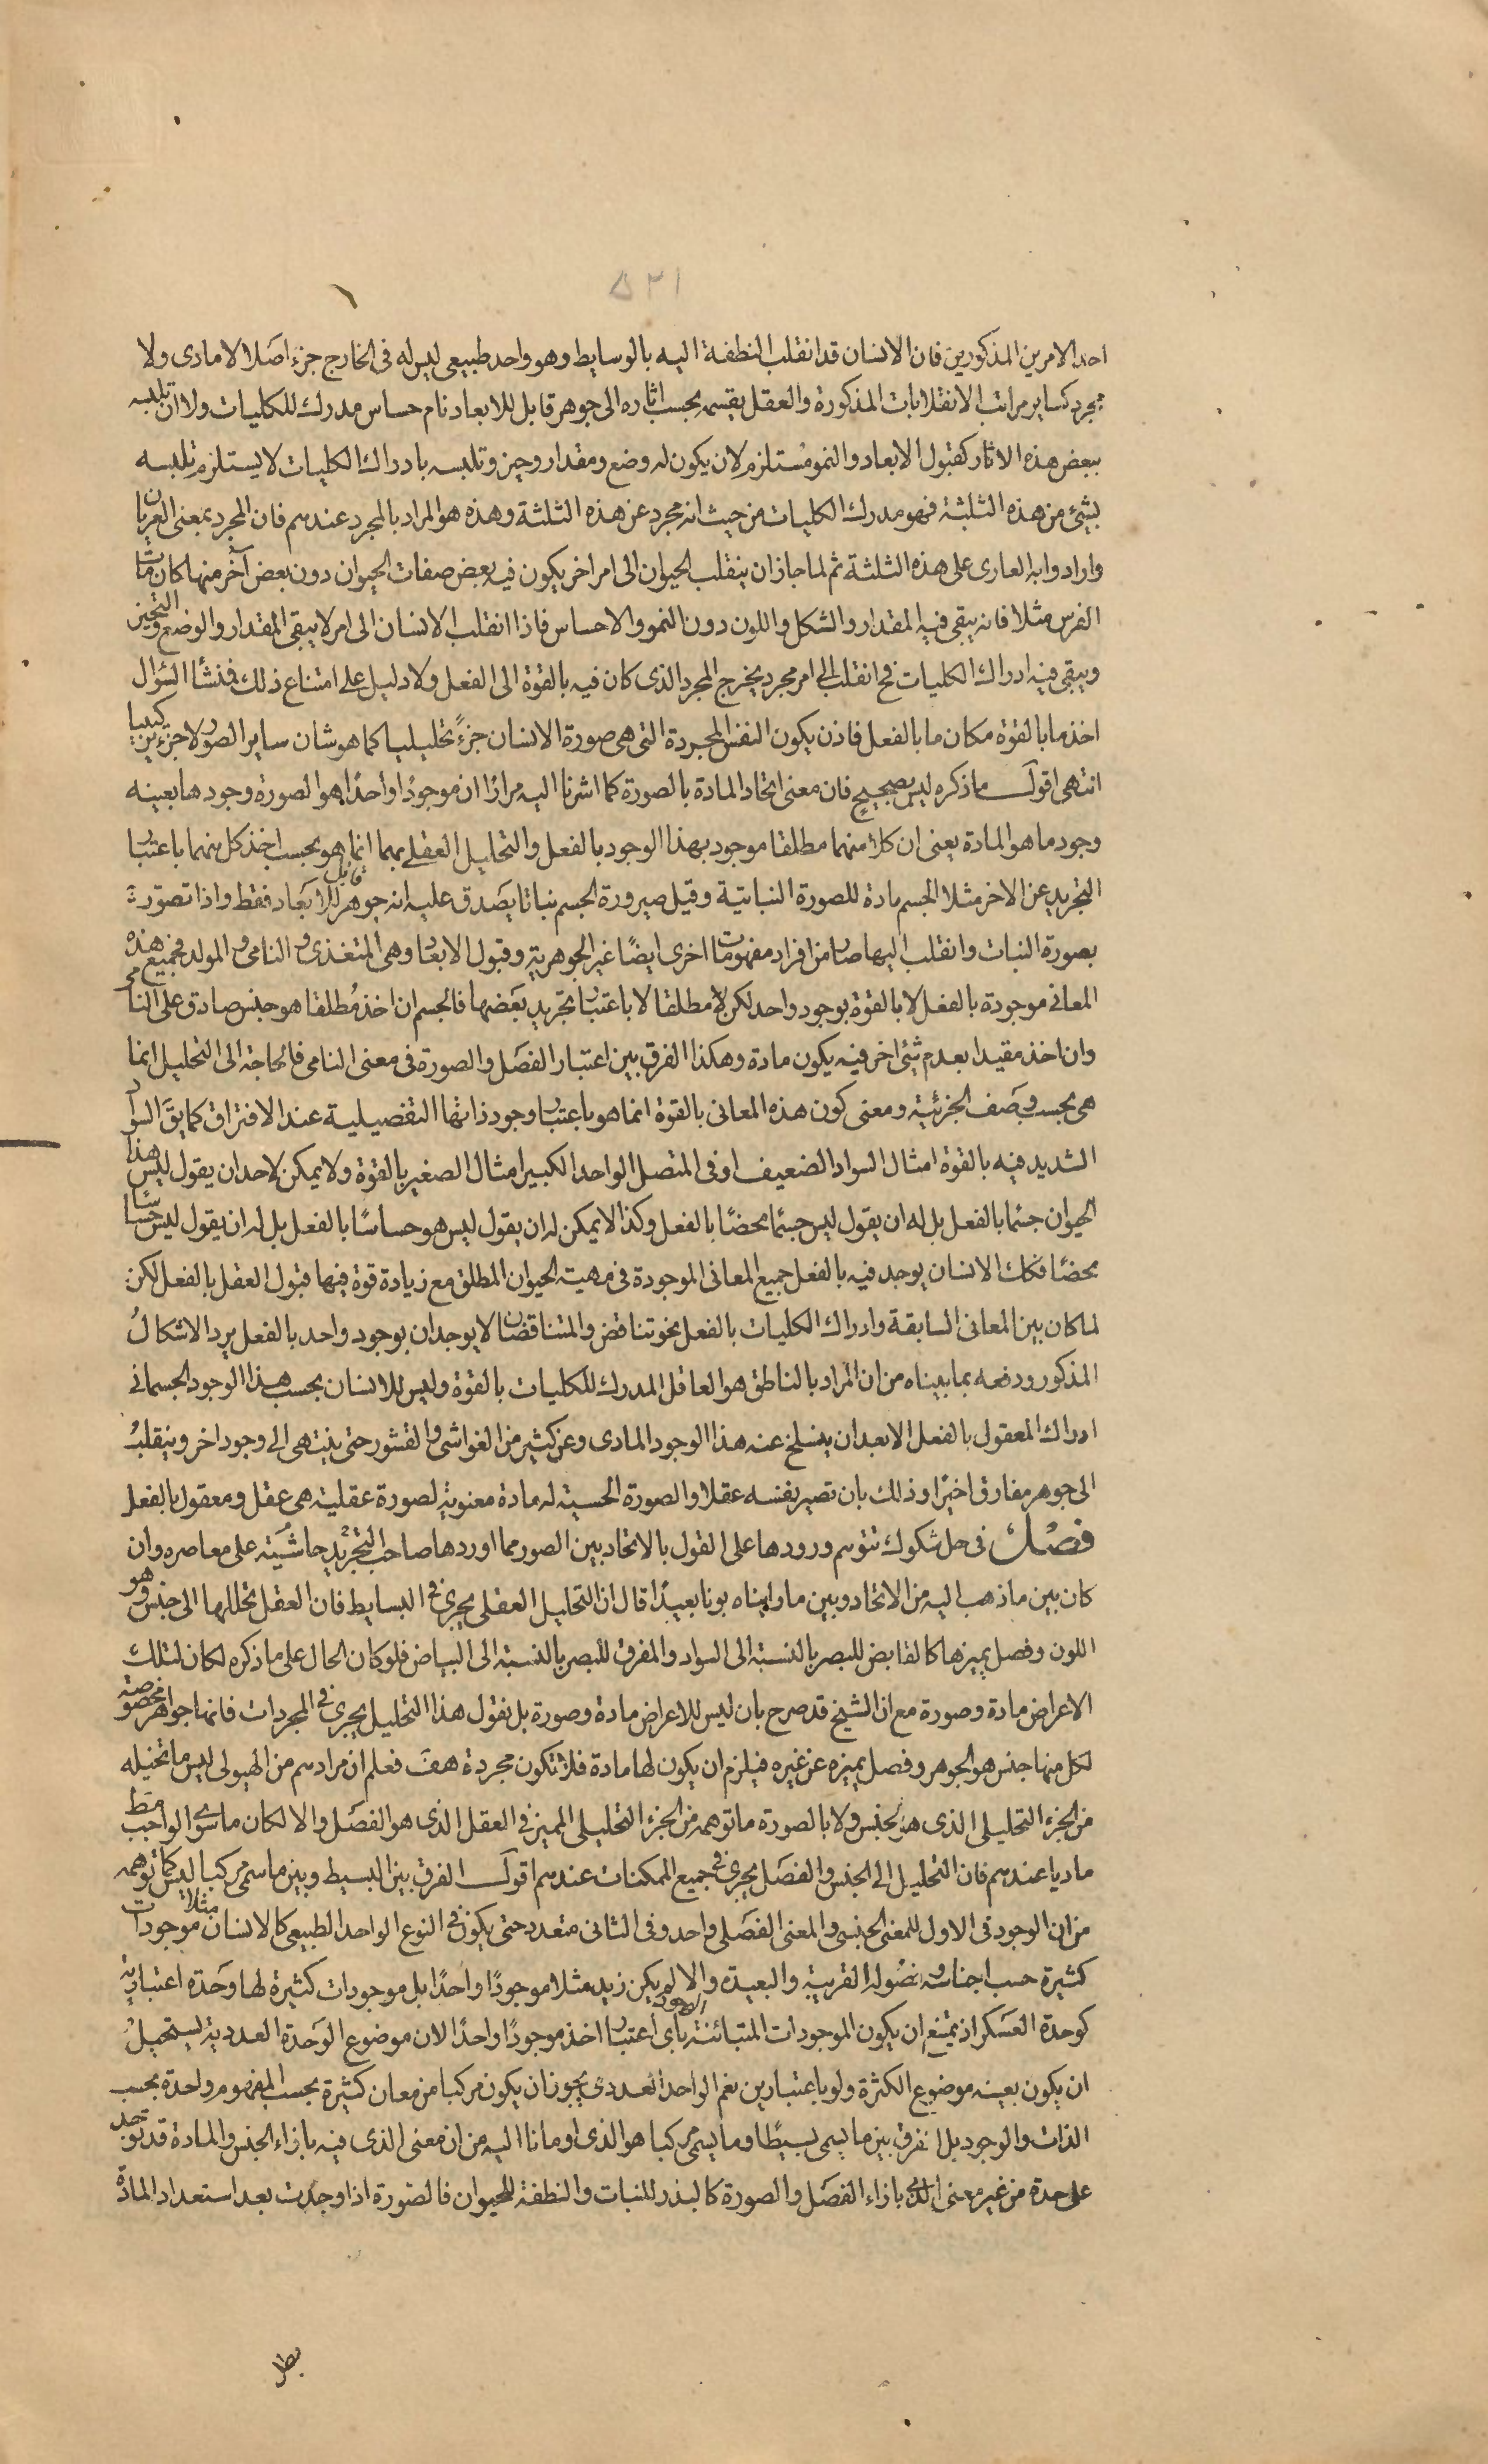 ٥٢١
احد الامرين المذكورين فان الانسان قد انقلب النطفة اليه بالوسايط وهو واحد طبيعى ليس له فى الخارج جزء اصلا لا مادى ولا
مجرد كساير مراتب الانقلابات المذكورة والعقل يقسمه بحسب اثاره الى جوهر قابل للابعاد نام حساس مدرك للكليات ولا ان تلبسه
ببعض هذه الاثار كقبول الابعاد والنمو مستلزم لان يكون له وضع ومقدار وحيز وتلبسه بادراك الكليات لا يستلزم تلبسه
بشئ من هذه الثلثة فهو مدرك الكليات من حيث انه مجرد عن هذه الثلثة وهذه هو المراد بالمجرد عندهم فان المجرد بمعنى العريان
وارادوا به العارى على هذه الثلثة ثم لما جاز ان ينقلب الحيوان الى امر اخر يكون فيه بعض صفات الحيوان دون بعض آخر منها كان مات
الفرس مثلا فانه يبقى فيه المقدار والشكل واللون دون النمو والاحساس فاذا انقلب الانسان الى امر لا يبقى المقدار والوضع والتحيز
ويبقى فيه ادراك الكليات فح انقلب الى امر مجرد يخرج المجرد الذى كان فيه بالقوة الى الفعل ولا دليل على امتناع ذلك فنشأ السؤال
اخذ ما بالقوة مكان ما بالفعل فاذن يكون النفس المجردة التى هى صورة الانسان جزءً تحليليا كما هو شان ساير الصور لا جزء تركيبيا
انتهى اقول ما ذكره ليس بصحيح فان معنى اتحاد المادة بالصورة كما اشرنا اليه مرارًا ان موجودًا واحدًا هو الصورة وجودها بعينه
وجود ما هو المادة يعنى ان كلا منهما مطلقا موجود بهذا الوجود بالفعل والتحليل العقلى بهما انما هو بحسب اخذ كل منهما باعتبار
التجريد عن الاخر مثلا الجسم مادة للصورة النباتية وقبل صيرورة الجسم نباتا يصدق عليه انه جوهر قابل للابعاد فقط واذا تصورت
بصورة النبات وانقلب اليها صار من افراد مفهومات اخرى ايضًا غير الجوهرية وقبول الابعاد وهى المتغذى والنامى والمولد فجميع هذه
المعانى موجودة بالفعل لا بالقوة بوجود واحد لكن لا مطلقا لا باعتبار تجريد بعضها فالجسم ان اخذ مطلقا هو جنس صادق على النامى
وان اخذ مقيدا بعدم شئ اخر فيه يكون مادة وهكذا الفرق بين اعتبار الفصل والصورة فى معنى النامى فالحاجة الى التحليل انما
هى بحسب وصف الجزئية ومعنى كون هذه المعانى بالقوة انما هو باعتبار وجود ذاتها التفصيلية عند الافتراق كما يق السواد
الشديد فيه بالقوة امثال السواد الضعيف او فى المتصل الواحد الكبير امثال الصغير بالقوة ولا يمكن لاحد ان يقول ليس هذا
الحيوان جسما بالفعل بل له ان يقول ليس جسمًا محضًا بالفعل وكذا لا يمكن له ان يقول ليس هو حساسًا بالفعل بل له ان يقول ليس حساسًا
محضًا فكك الانسان يوجد فيه بالفعل جميع المعانى الموجودة فى مهية الحيوان المطلق مع زيادة قوة فيها قبول العقل بالفعل لكن
لما كان بين المعانى السابقة وادراك الكليات بالفعل نحو تناقض والمتناقضان لا يوجدان بوجود واحد بالفعل يرد الاشكال
المذكور ودفعه بما بيناه من ان المراد بالناطق هو العاقل المدرك للكليات بالقوة وليس للانسان بحسب هذا الوجود الجسمانى
ادراك المعقول بالفعل الا بعد ان ينسلخ عنه هذا الوجود المادى وعن كثير من الغواشى والقشور حتى ينتهى الى وجود اخر وينقلب
الى جوهر مفارق اخيرًا وذلك بان تصير نفسه عقلا والصورة الحسية له مادة معنوية لصورة عقلية هى عقل ومعقول بالفعل
فصل فى حل شكوك تتوهم ورودها على القول بالاتحاد بين الصور مما اوردها صاحب حاشية التجريد على معاصره وان
كان بين ما ذهب اليه من الاتحاد وبين ما رايناه بونا بعيدًا قال ان التحليل العقلى يجرى فى البسايط فان العقل يحللها الى جنس وهو
اللون وفصل يميزها كالقابض للبصر بالنسبة الى السواد والمفرق للبصر بالنسبة الى البياض فلو كان الحال على ما ذكره لكان لتلك
الاعراض مادة وصورة مع ان الشيخ قد صرح بان ليس للاعراض مادة وصورة بل نقول هذا التحليل يجرى فى المجردات فانها جواهر مخصوصة
لكل منها جنس هو الجوهر وفصل يميزه عن غيره فيلزم ان يكون لها مادة فلا تكون مجردة هف فعلم ان مرادهم من الهيولى ليس ما تخيله
من الجزء التحليلى الذى هو الجنس ولا بالصورة ما توهمه من الجزء التحليلى المميز فى العقل الذى هو الفصل والا لكان ما سوى الواجب مط
ماديا عندهم فان التحليل الى الجنس والفصل يجرى فى جميع الممكنات عندهم اقول الفرق بين البسيط وبين ما سمى مركبا ليس كما توهمه
من ان الوجود فى الاول للمعنى الجنسى والمعنى الفصلى واحد وفى الثانى متعدد حتى يكون فى النوع الواحد الطبيعى كالانسان مثلا موجودات
كثيرة حسب اجناسه وفصوله القريبة والبعيدة والا لم يكن زيد مثلا موجودًا واحدًا بل موجودات كثيرة لها وحدة اعتبارية
كوحدة العسكر اذ يمتنع ان يكون الموجودات المتبائنة الوجود باى اعتبار اخذ موجودًا واحدًا لان موضوع الوحدة العددية يستحيل
ان يكون بعينه موضوع الكثرة ولو باعتبارين نعم الواحد العددى يجوز ان يكون مركبا من معان كثيرة بحسب المفهوم واحدة بحسب
الذات والوجود بل الفرق بين ما يسمى بسيطًا وما يسمى مركبا هو الذى اومانا اليه من ان معنى الذى فيه بازاء الجنس والمادة قد توجد
على حدة من غير معنى الذى بازاء الفصل والصورة كالبذر للنبات والنطفة للحيوان فالصورة اذا وجدت بعد استعداد المادة